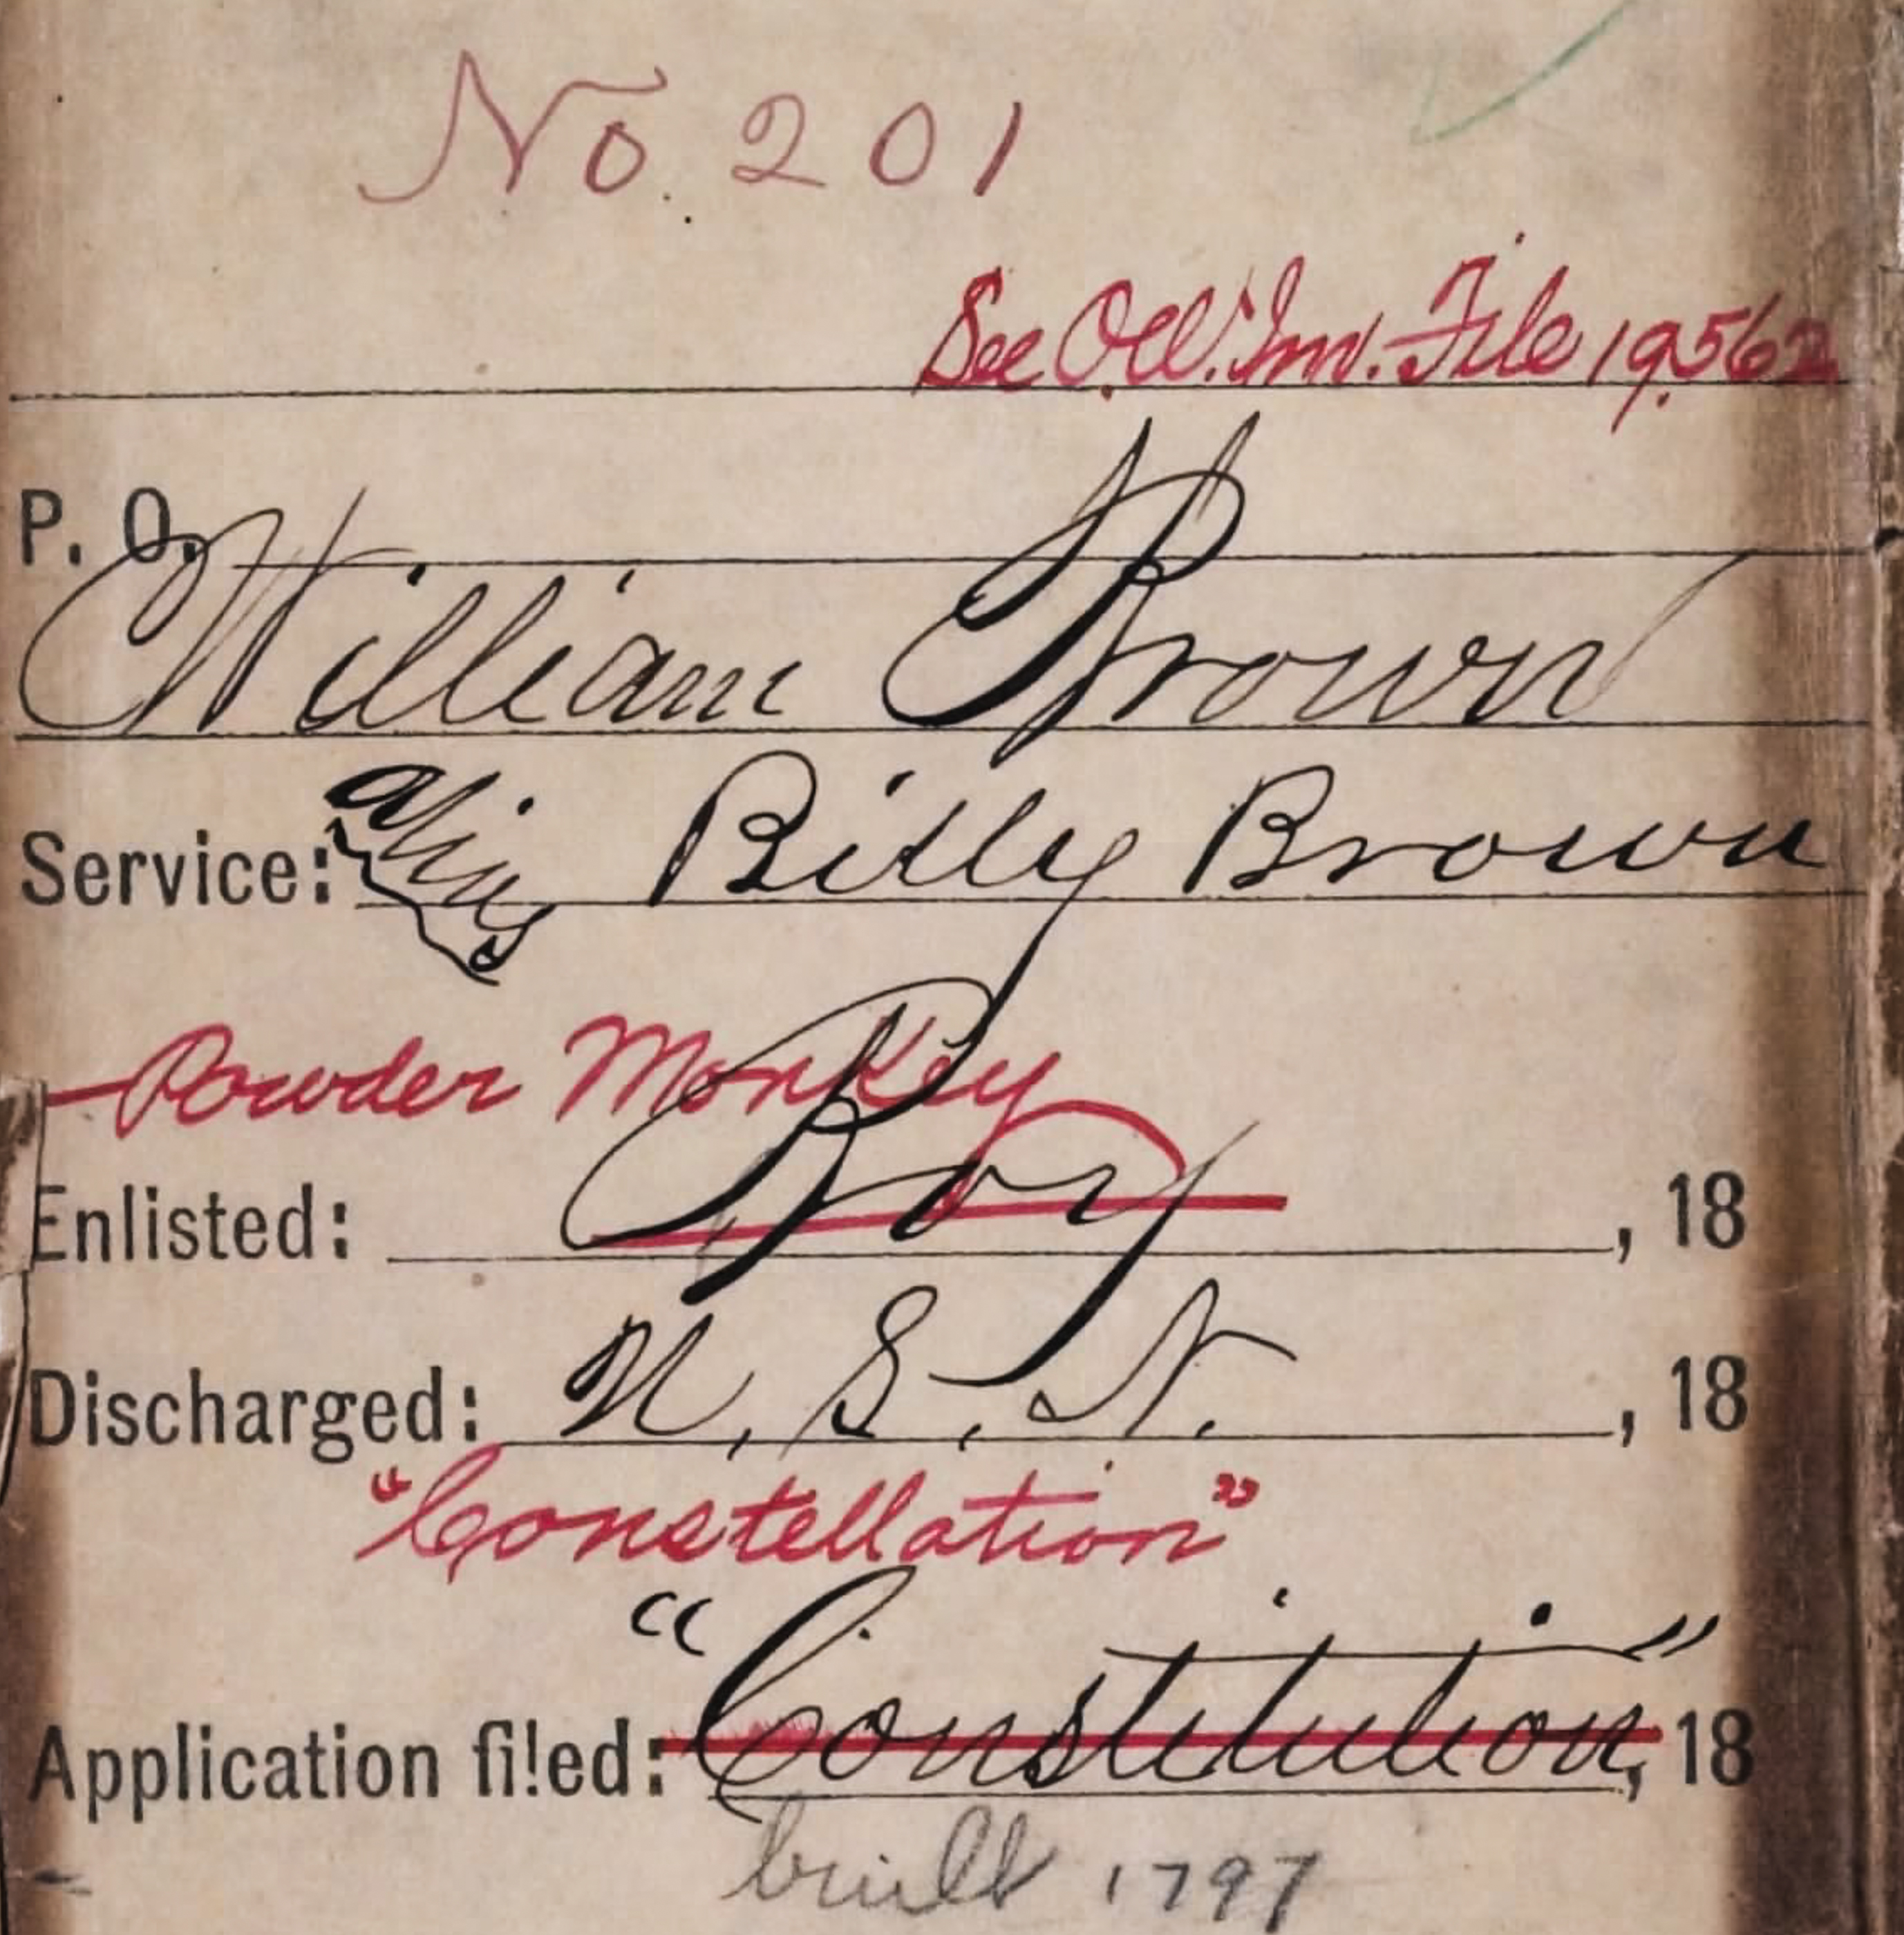 No. 201
See O.W. Inv. File 19,562
P. O.
William Brown
Service: alias Billy Brown
Powder Monkey
Enlisted: Boy , 18
Discharged: U. S. N. , 18
"Constellation"
Application filed: "Constitution" , 18
built 1797